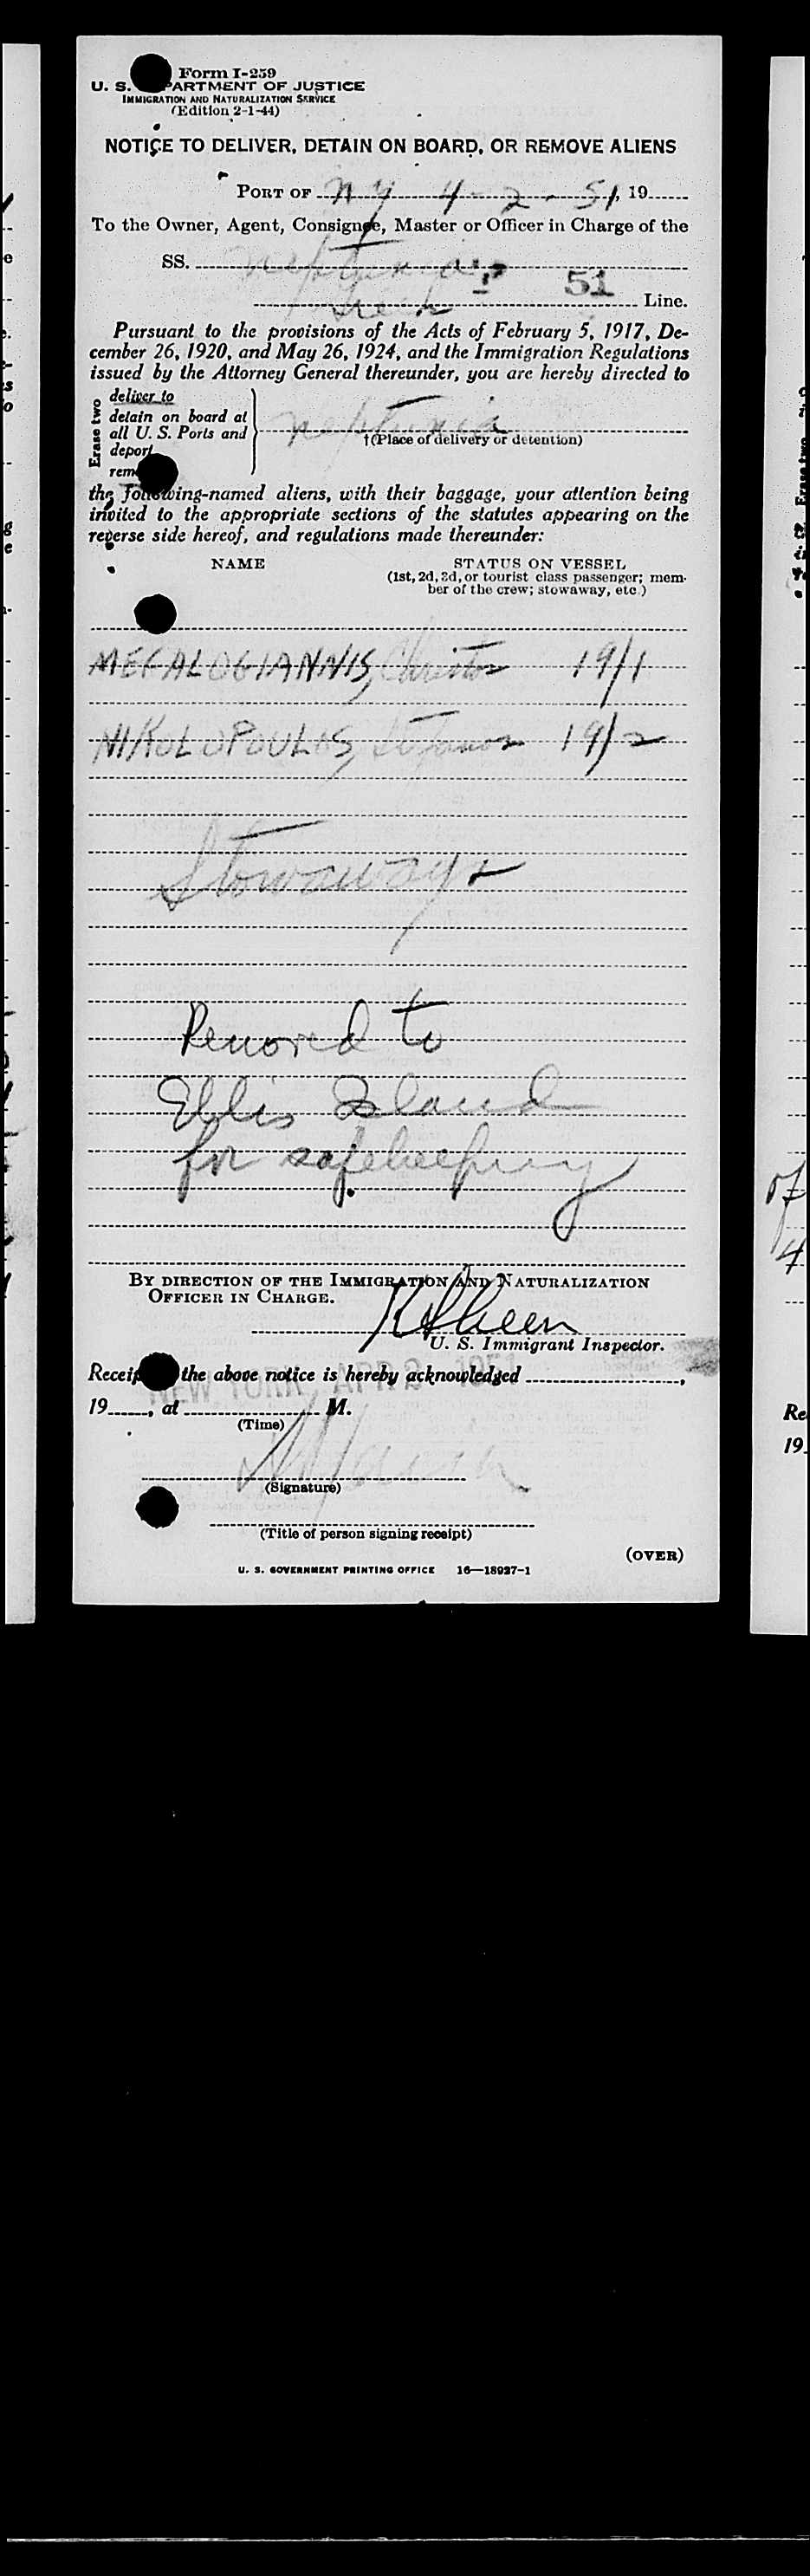 Form I-259
U. S. PARTMENT OF JUSTICE
IMMIGRATION AND NATURALIZATION SERVICE
(Edition 2-1-44)
NOTICE TO DELIVER, DETAIN ON BOARD, OR REMOVE ALIENS
PORT OF NY 4-2-51, 19
To the Owner, Agent, Consignee, Master or Officer in Charge of the
SS. Neptunia
51
Greek Line.
Pursuant to the provisions of the Acts of February 5, 1917, De-
cember 26, 1920, and May 26, 1924, and the Immigration Regulations
issued by the Attorney General thereunder, you are hereby directed to
Erase two
deliver to
detain on board at
all U. S. Ports and
deport
rem
Neptunia
†(Place of delivery or detention)
the following-named aliens, with their baggage, your attention being
invited to the appropriate sections of the statutes appearing on the
reverse side hereof, and regulations made thereunder:
NAME STATUS ON VESSEL
(1st, 2d, 3d, or tourist class passenger; mem-
ber of the crew; stowaway, etc.)
MEGALOGIANNIS, Christos 19/1
NIKOLOPOULOS, Stefanos 19/2
Stowaways
Removed to
Ellis Island
for safekeeping
BY DIRECTION OF THE IMMIGRATION AND NATURALIZATION
OFFICER IN CHARGE.
U. S. Immigrant Inspector.
Receip the above notice is hereby acknowledged ,
NEW YORK, APR 2 1951
19 , at M.
(Time)
(Signature)
(Title of person signing receipt)
(OVER)
U. S. GOVERNMENT PRINTING OFFICE 16—18927-1